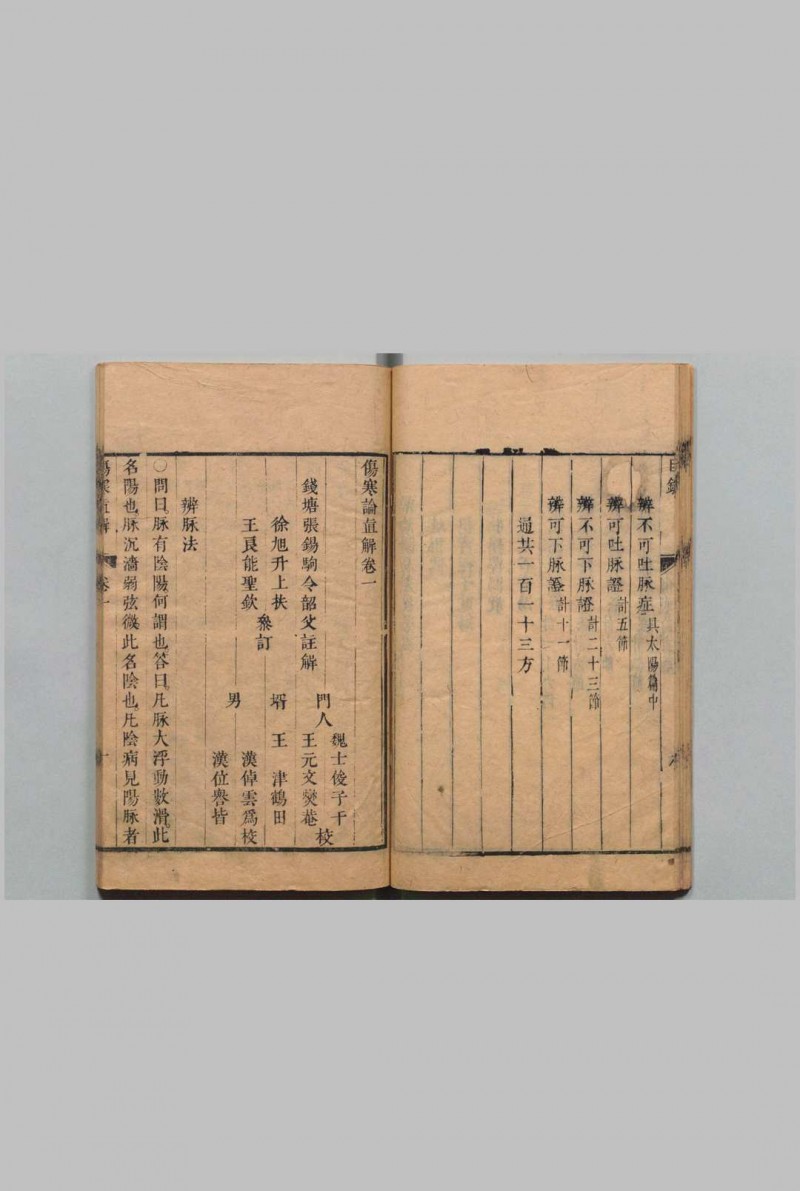 目錄
辨不可吐脉症具太陽篇中
辨可吐脉證計五節
辨不可下脉證計二十三節
辨可下脉證計十一節
通共一百一十三方
傷寒論直解卷一
魏士俊子干
門人 校
錢塘張錫駒令韶父註解 王元文燮菴
徐旭升上扶 壻王津鶴田
參訂
王良能聖欽 漢倬雲為校
男
漢位譽皆
辨脉法
○問曰脉有陰陽何謂也答曰凡脉大浮動數滑此
名陽也脉沉濇弱弦微此名陰也凡陰病見陽脉者
傷寒直解 卷一 一